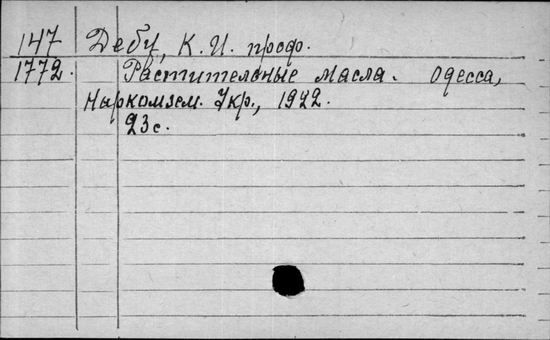 147 Дебу, К. И. проф.
1772. Растительные масла. Одесса,
Наркомзем. Укр., 1922.
23с.